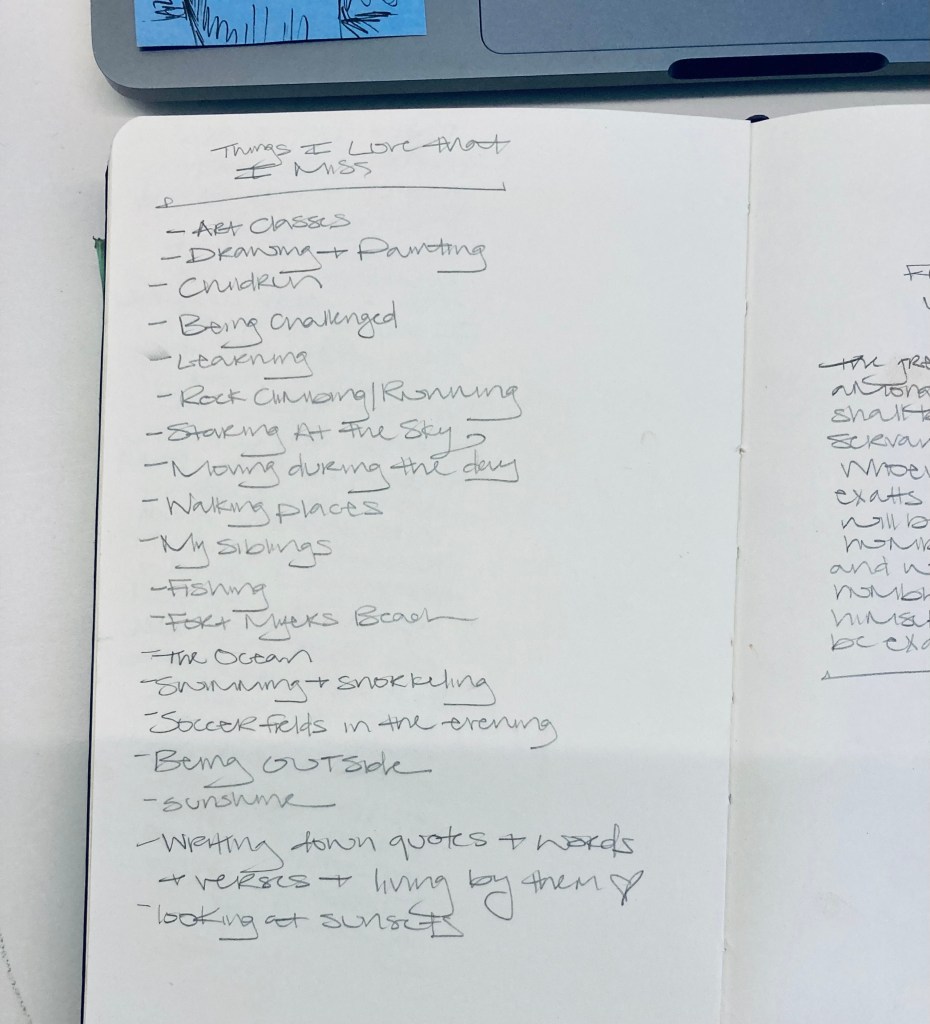 Things I Love that
I Miss
- Art Classes
- Drawing + Painting
- Children
- Being Challenged
- Learning
- Rock Climbing/Running
- Staring At the Sky
- Moving during the day
- Walking places
- My siblings
- Fishing
- Fort Myers Beach
- the Ocean
- Swimming + snorkeling
- Soccer fields in the evening
- Being OUTside
- sunshine
- Writing down quotes + words
+ verses + living by them ♡
- looking at sunsets
the gre
among
shall b
servan
Whoev
exalts
will b
humb
and w
humbl
himse
be exa